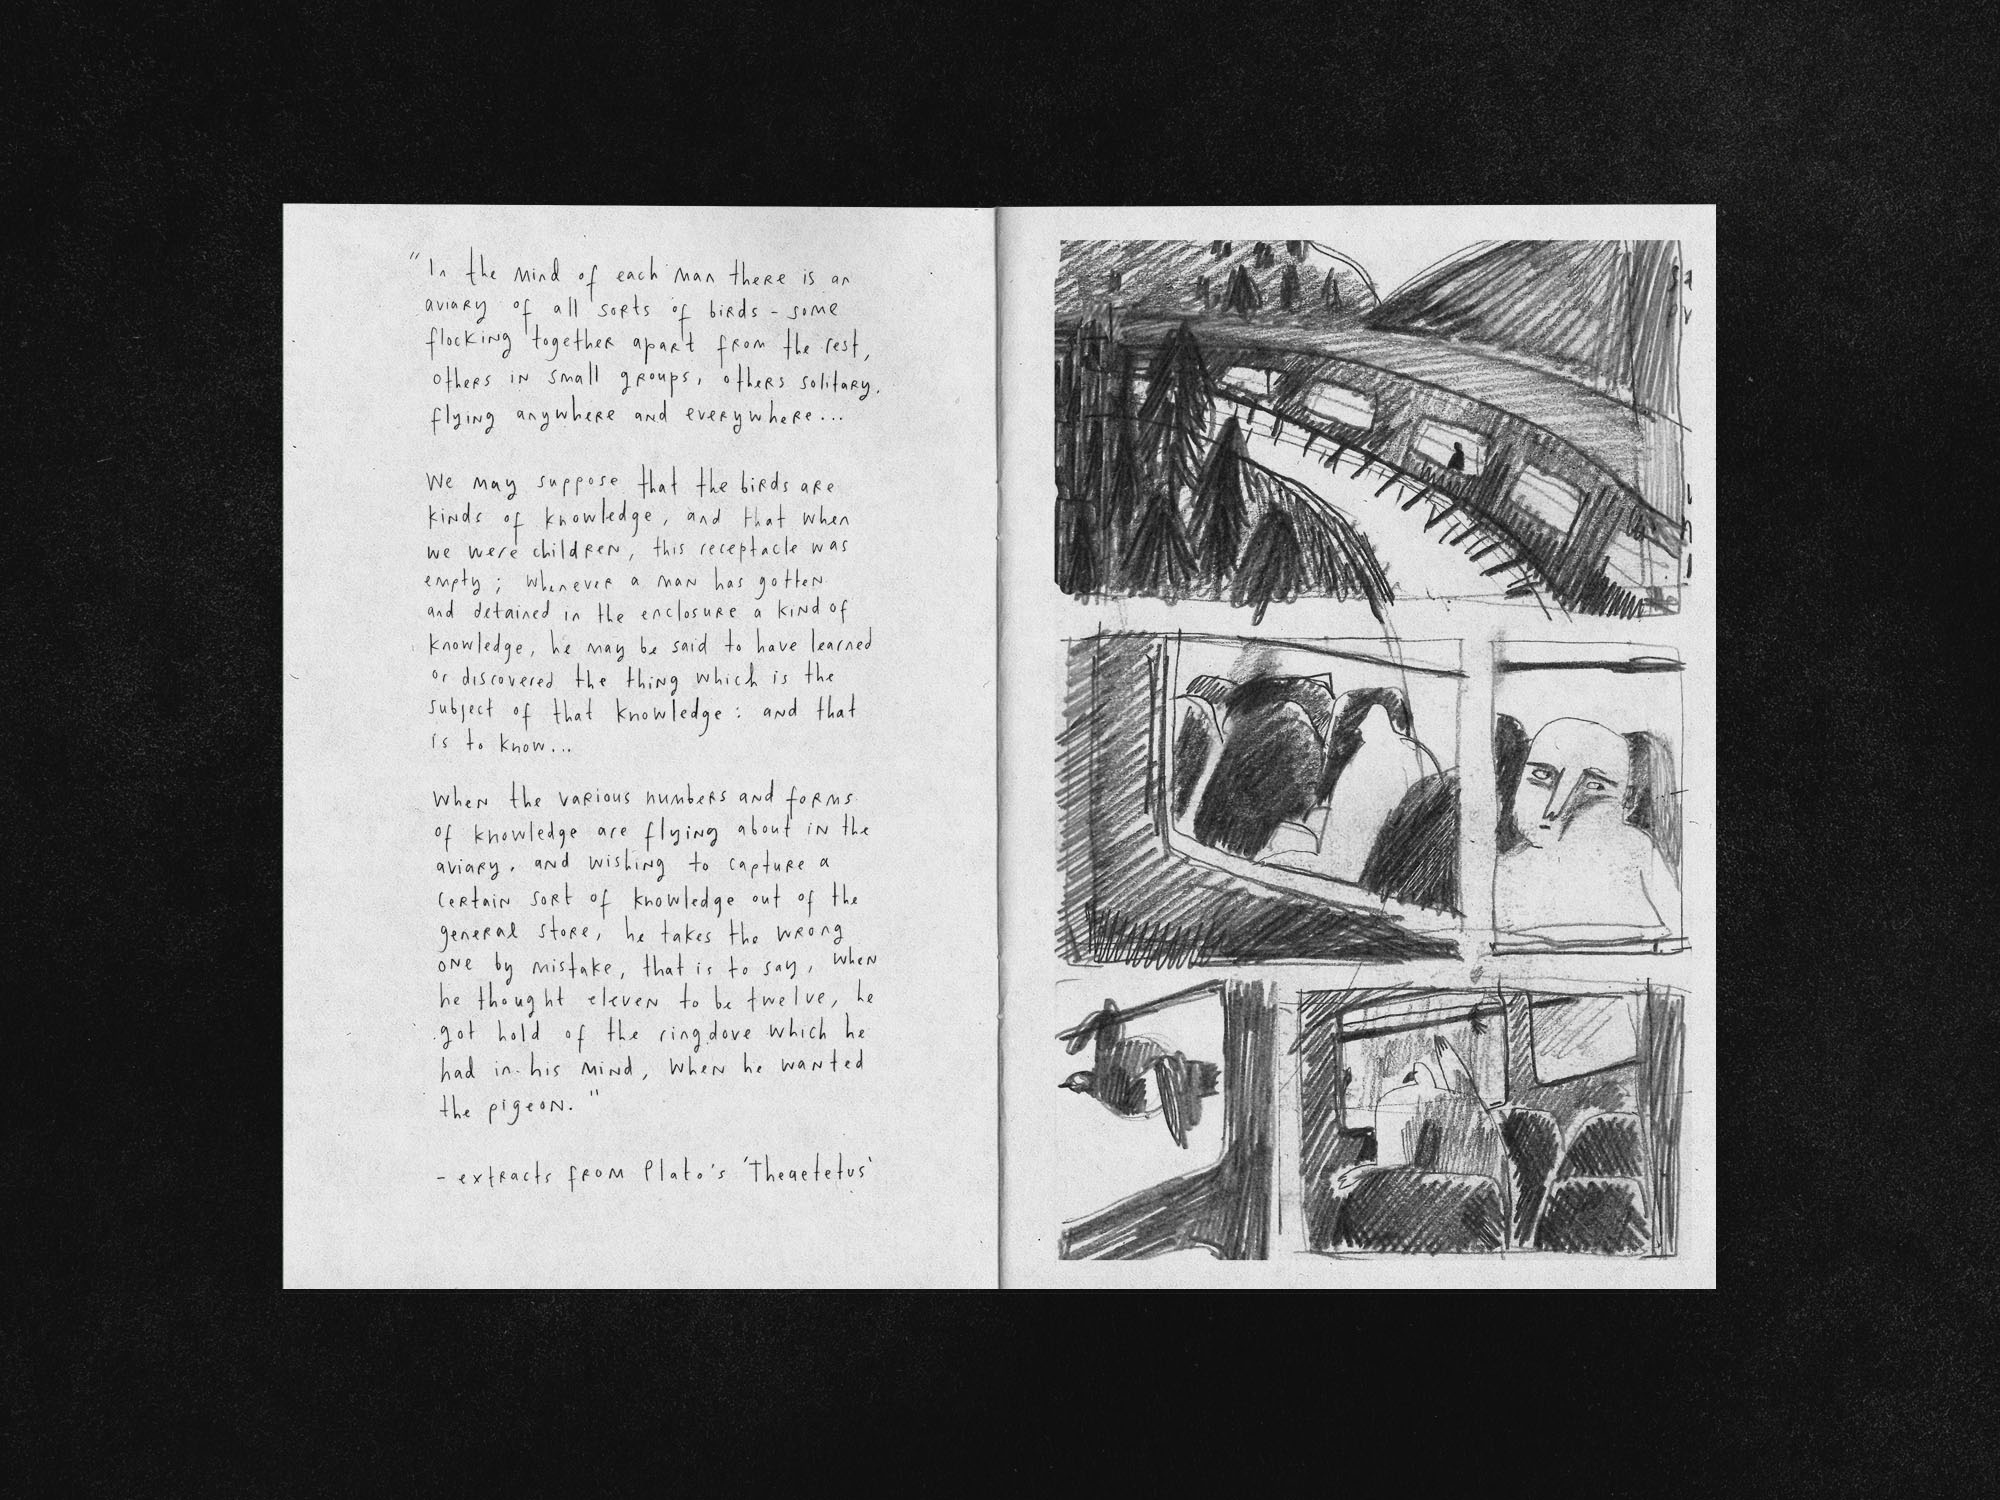 "In the mind of each man there is an
aviary of all sorts of birds - some
flocking together apart from the rest,
others in small groups, others solitary,
flying anywhere and everywhere...
We may suppose that the birds are
kinds of knowledge, and that when
we were children, this receptacle was
empty; whenever a man has gotten
and detained in the enclosure a kind of
knowledge, he may be said to have learned
or discovered the thing which is the
subject of that knowledge: and that
is to know...
When the various numbers and forms
of knowledge are flying about in the
aviary, and wishing to capture a
certain sort of knowledge out of the
general store, he takes the wrong
one by mistake, that is to say, when
he thought eleven to be twelve, he
got hold of the ringdove which he
had in his mind, when he wanted
the pigeon."
- extracts from Plato's 'Theaetetus'